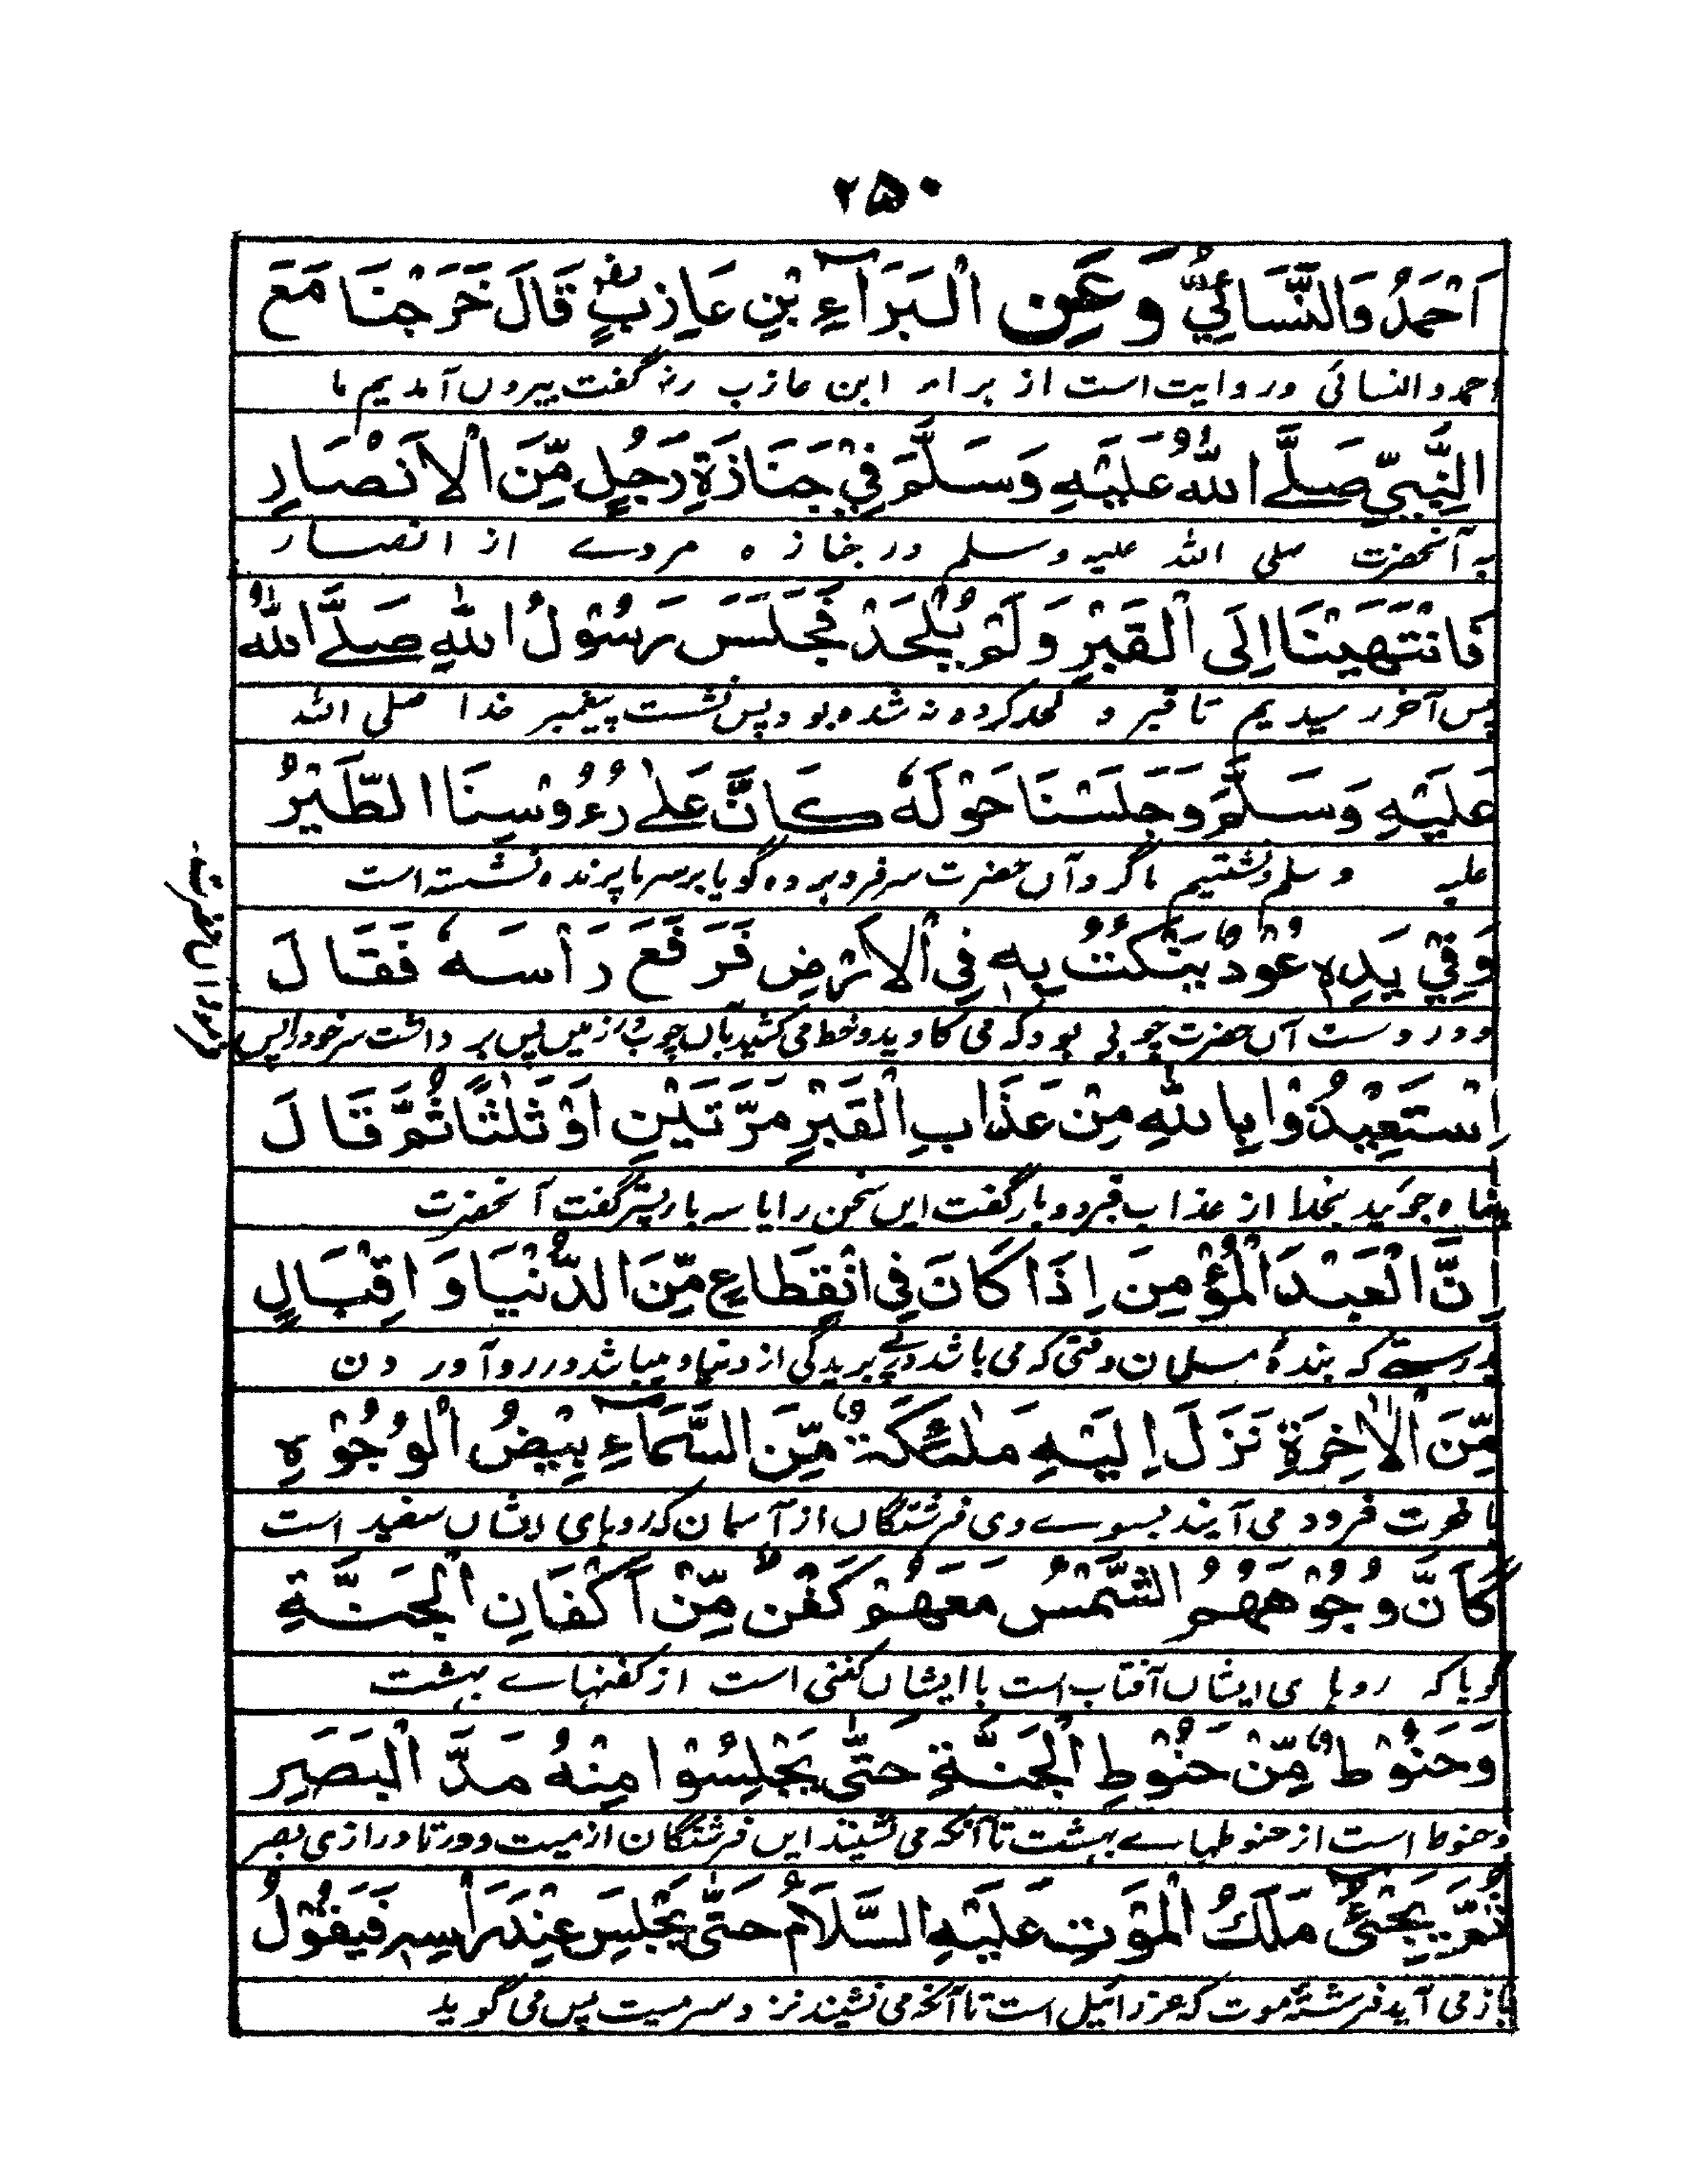 ۲۵۰
اَحْمَدُ وَالنَّسَائِيُّ وَعَنِ الْبَرَآءِ بْنِ عَازِبٍ قَالَ خَرَجْنَا مَعَ
احمد والنسائی و روایت است از براء ابن عازب رض گفت بیروں آمدیم ما
النَّبِيِّ صَلَّے اللهُ عَلَيْهِ وَسَلَّمَ فِيْ جَنَازَةِ رَجُلٍ مِّنَ الْاَنْصَارِ
بہ آنحضرت صلی اللہ علیہ وسلم در جنازہ مردے از انصار
فَانْتَهَيْنَا اِلَى الْقَبْرِ وَلَمْ يُلْحَدْ فَجَلَسَ رَسُوْلُ اللهِ صَلَّے اللهُ
پس آخر رسیدیم تا قبر و لحد کرده نہ شده بود پس نشست پیغمبر خدا صلی اللہ
عَلَيْهِ وَسَلَّمَ وَجَلَسْنَا حَوْلَهٗ كَاَنَّ عَلٰے رُءُوْسِنَا الطَّيْرُ
علیہ وسلم و نشستیم ما گرد آں حضرت سر فرو برده گویا بر سر ما پرنده نشستہ است
وَفِيْ يَدِهٖ عُوْدٌ يَنْكُتُ بِهٖ فِي الْاَرْضِ فَرَفَعَ رَأْسَهٗ فَقَالَ
و در دست آں حضرت چوبی بود کہ می کاوید و خط می کشید بآں چوب در زمین پس برداشت سر خود را پس
فرمود آں حضرت
اِسْتَعِيْذُوْا بِاللهِ مِنْ عَذَابِ الْقَبْرِ مَرَّتَيْنِ اَوْ ثَلٰثًا ثُمَّ قَالَ
پناه جوئید بخدا از عذاب قبر دو بار گفت ایں سخن را یا سہ بار پستر گفت آنحضرت
اِنَّ الْعَبْدَ الْمُؤْمِنَ اِذَا كَانَ فِي انْقِطَاعٍ مِّنَ الدُّنْيَا وَاِقْبَالٍ
بدرستے کہ بندۂ مسلمان وقتی کہ می باشد در پے بریدگی از دنیا و میباشد در رو آوردن
مِّنَ الْاٰخِرَةِ نَزَلَ اِلَيْهِ مَلٰئِكَةٌ مِّنَ السَّمَآءِ بِيْضُ الْوُجُوْهِ
بآخرت فرود می آیند بسوے وی فرشتگاں از آسمان کہ روہای ایشاں سفید است
كَاَنَّ وُجُوْهَهُمُ الشَّمْسُ مَعَهُمْ كَفَنٌ مِّنْ اَكْفَانِ الْجَنَّةِ
گویا کہ روہای ایشاں آفتاب است با ایشاں کفنی است از کفنہاے بہشت
وَحَنُوْطٌ مِّنْ حَنُوْطِ الْجَنَّةِ حَتّٰى يَجْلِسُوْا مِنْهُ مَدَّ الْبَصَرِ
و حنوط است از حنوطہاے بہشت تا آنکہ می نشینند ایں فرشتگان از میت دور تا درازی بصر
ثُمَّ يَجِيْٓئُ مَلَكُ الْمَوْتِ عَلَيْهِ السَّلَامُ حَتّٰى يَجْلِسَ عِنْدَ رَأْسِهٖ فَيَقُوْلُ
باز می آید فرشتۂ موت کہ عزرائیل است تا آنکہ می نشیند نزد سر میت پس می گوید